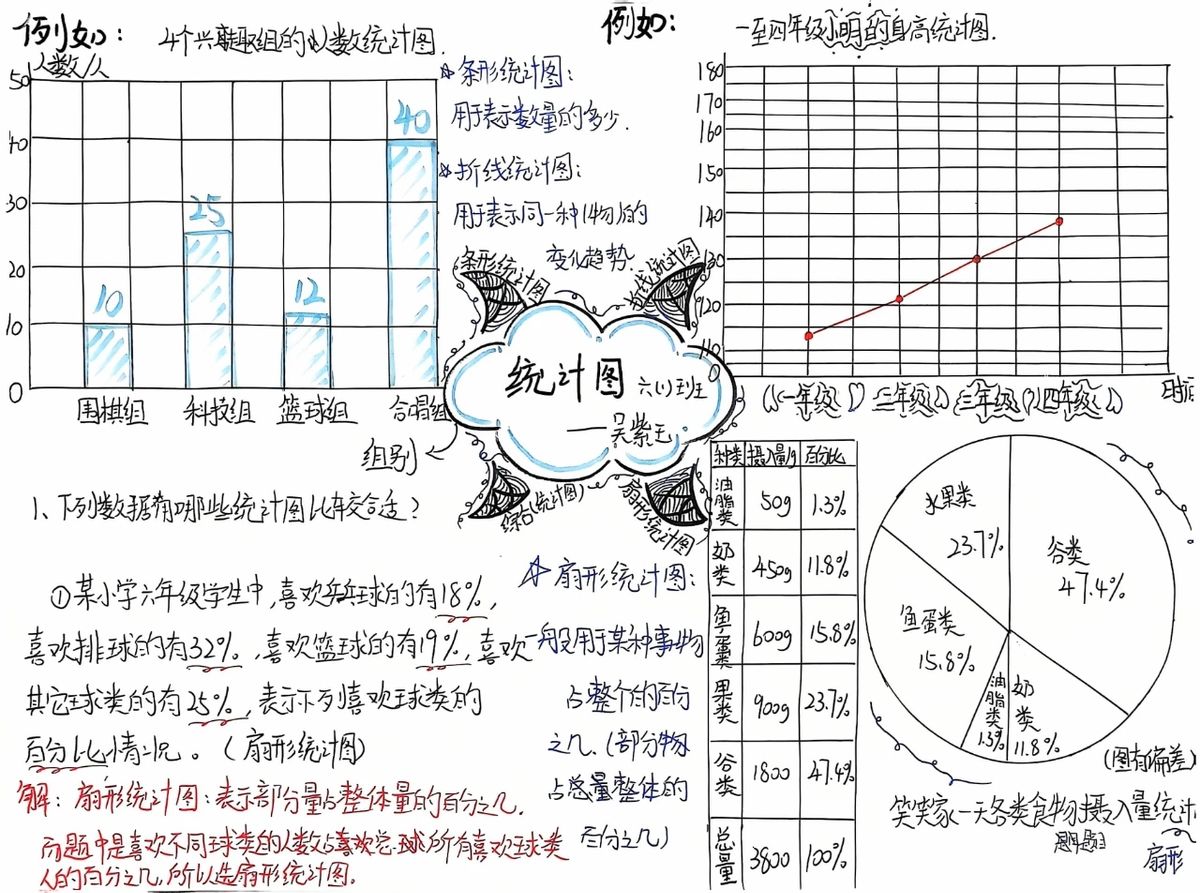 例如：
4个兴趣组的人数统计图.
人数/人
50
40
30
20
10
0
10
25
12
40
围棋组 科技组 篮球组 合唱组
组别
☆条形统计图：
用于表示数量的多少.
☆折线统计图：
用于表示同一种(物)的
变化趋势.
例如：
一至四年级小明的身高统计图.
180
170
160
150
140
130
120
110
0
(一年级) 二年级 三年级 四年级
条形统计图
折线统计图
统计图 六(1)班
综合(统计图)
扇形统计图
1、下列数据有哪些统计图比较合适？
①某小学六年级学生中，喜欢乒乓球的有18%，
喜欢排球的有32%，喜欢篮球的有19%，喜欢
其它球类的有25%，表示下列喜欢球类的
百分比情况。（扇形统计图）
解：扇形统计图：表示部分量占整体量的百分之几.
而题中是喜欢不同球类的人数占喜欢总球所有喜欢球类
人的百分之几，所以选扇形统计图.
☆扇形统计图：
一般用于某种事物
占整个的百分
之几.(部分物
占总量整体的
百分之几)
种类 摄入量/g 百分比
油脂类 50g 1.3%
奶类 450g 11.8%
鱼蛋类 600g 15.8%
果类 900g 23.7%
谷类 1800 47.4%
总量 3800 100%
水果类
23.7%
谷类
47.4%
鱼蛋类
15.8%
油脂类
1.3%
奶类
11.8%
(图有偏差)
笑笑家一天各类食物摄入量统计
扇形